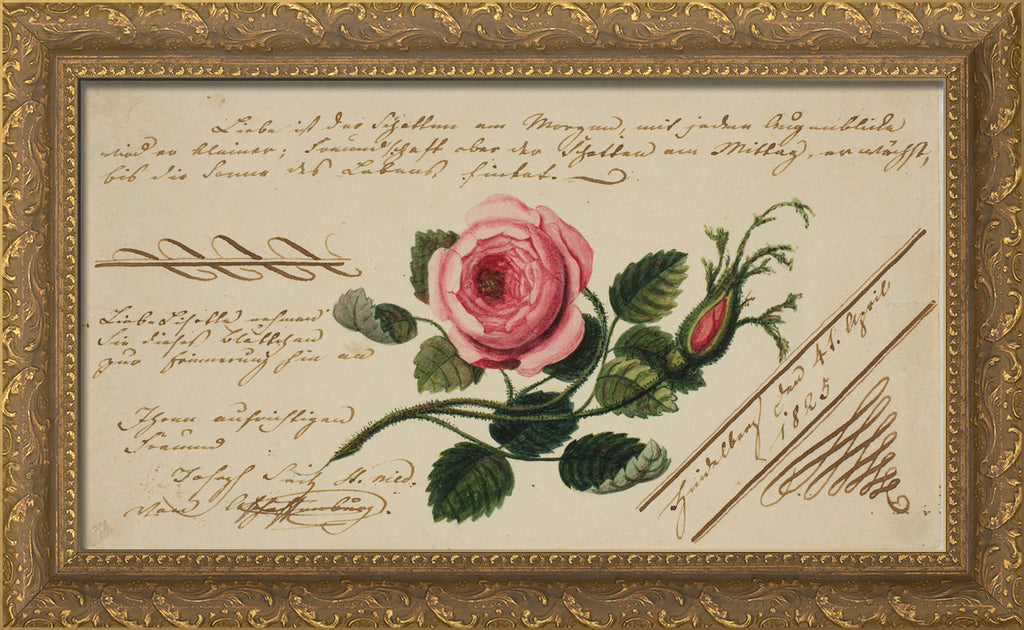 Liebe ist der Schatten am Morgen, mit jedem Augenblicke
wird er kleiner; Freundschaft aber der Schatten am Mittag, er wächst,
bis die Sonne des Lebens sinket.
Liebe nehmen
Sie dieses Blättchen
zur Erinnerung hin an
Ihren aufrichtigen
Freund
Joseph
von Aschaffenburg.
Heidelberg den April
1825